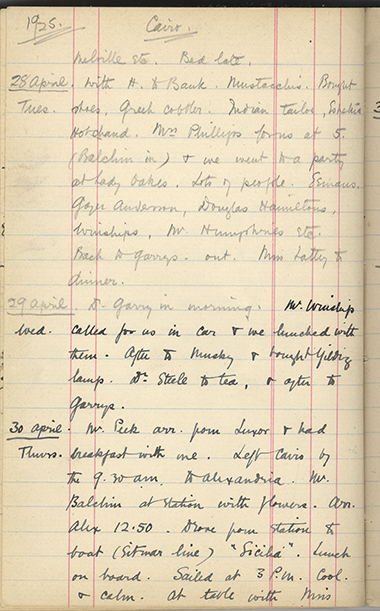 1925. Cairo.
Melville etc. Bed late.
28 April. With H. to Bank. Mustacchis. Bought
Tues. shoes, Greek cobbler. Indian tailor,
Hotchand. Mrs Phillips for us at 5.
(Balchin in) & we went to a party
at Lady Oakes. Lots of people. Esmans.
Gayer Anderson, Douglas Hamiltons,
Winships, Mr Humphreys etc.
Back to Garrys. out. Miss Lattey to
dinner.
29 April. Dr Garry in morning. Mr. Winship
Wed. called for us in car & we lunched with
them. After to Musky & bought
lamp. Dr. Steele to tea, & after to
Garrys.
30 April. Mr. Peck arr. from Luxor & had
Thurs. breakfast with me. Left Cairo by
the 9.30 am. to Alexandria. Mr.
Balchin at station with flowers. Arr.
Alex 12.50. Drove from station to
boat (Sitmar line) "Sicilia". Lunch
on board. Sailed at 3 P.M. Cool
& calm. At table with Miss